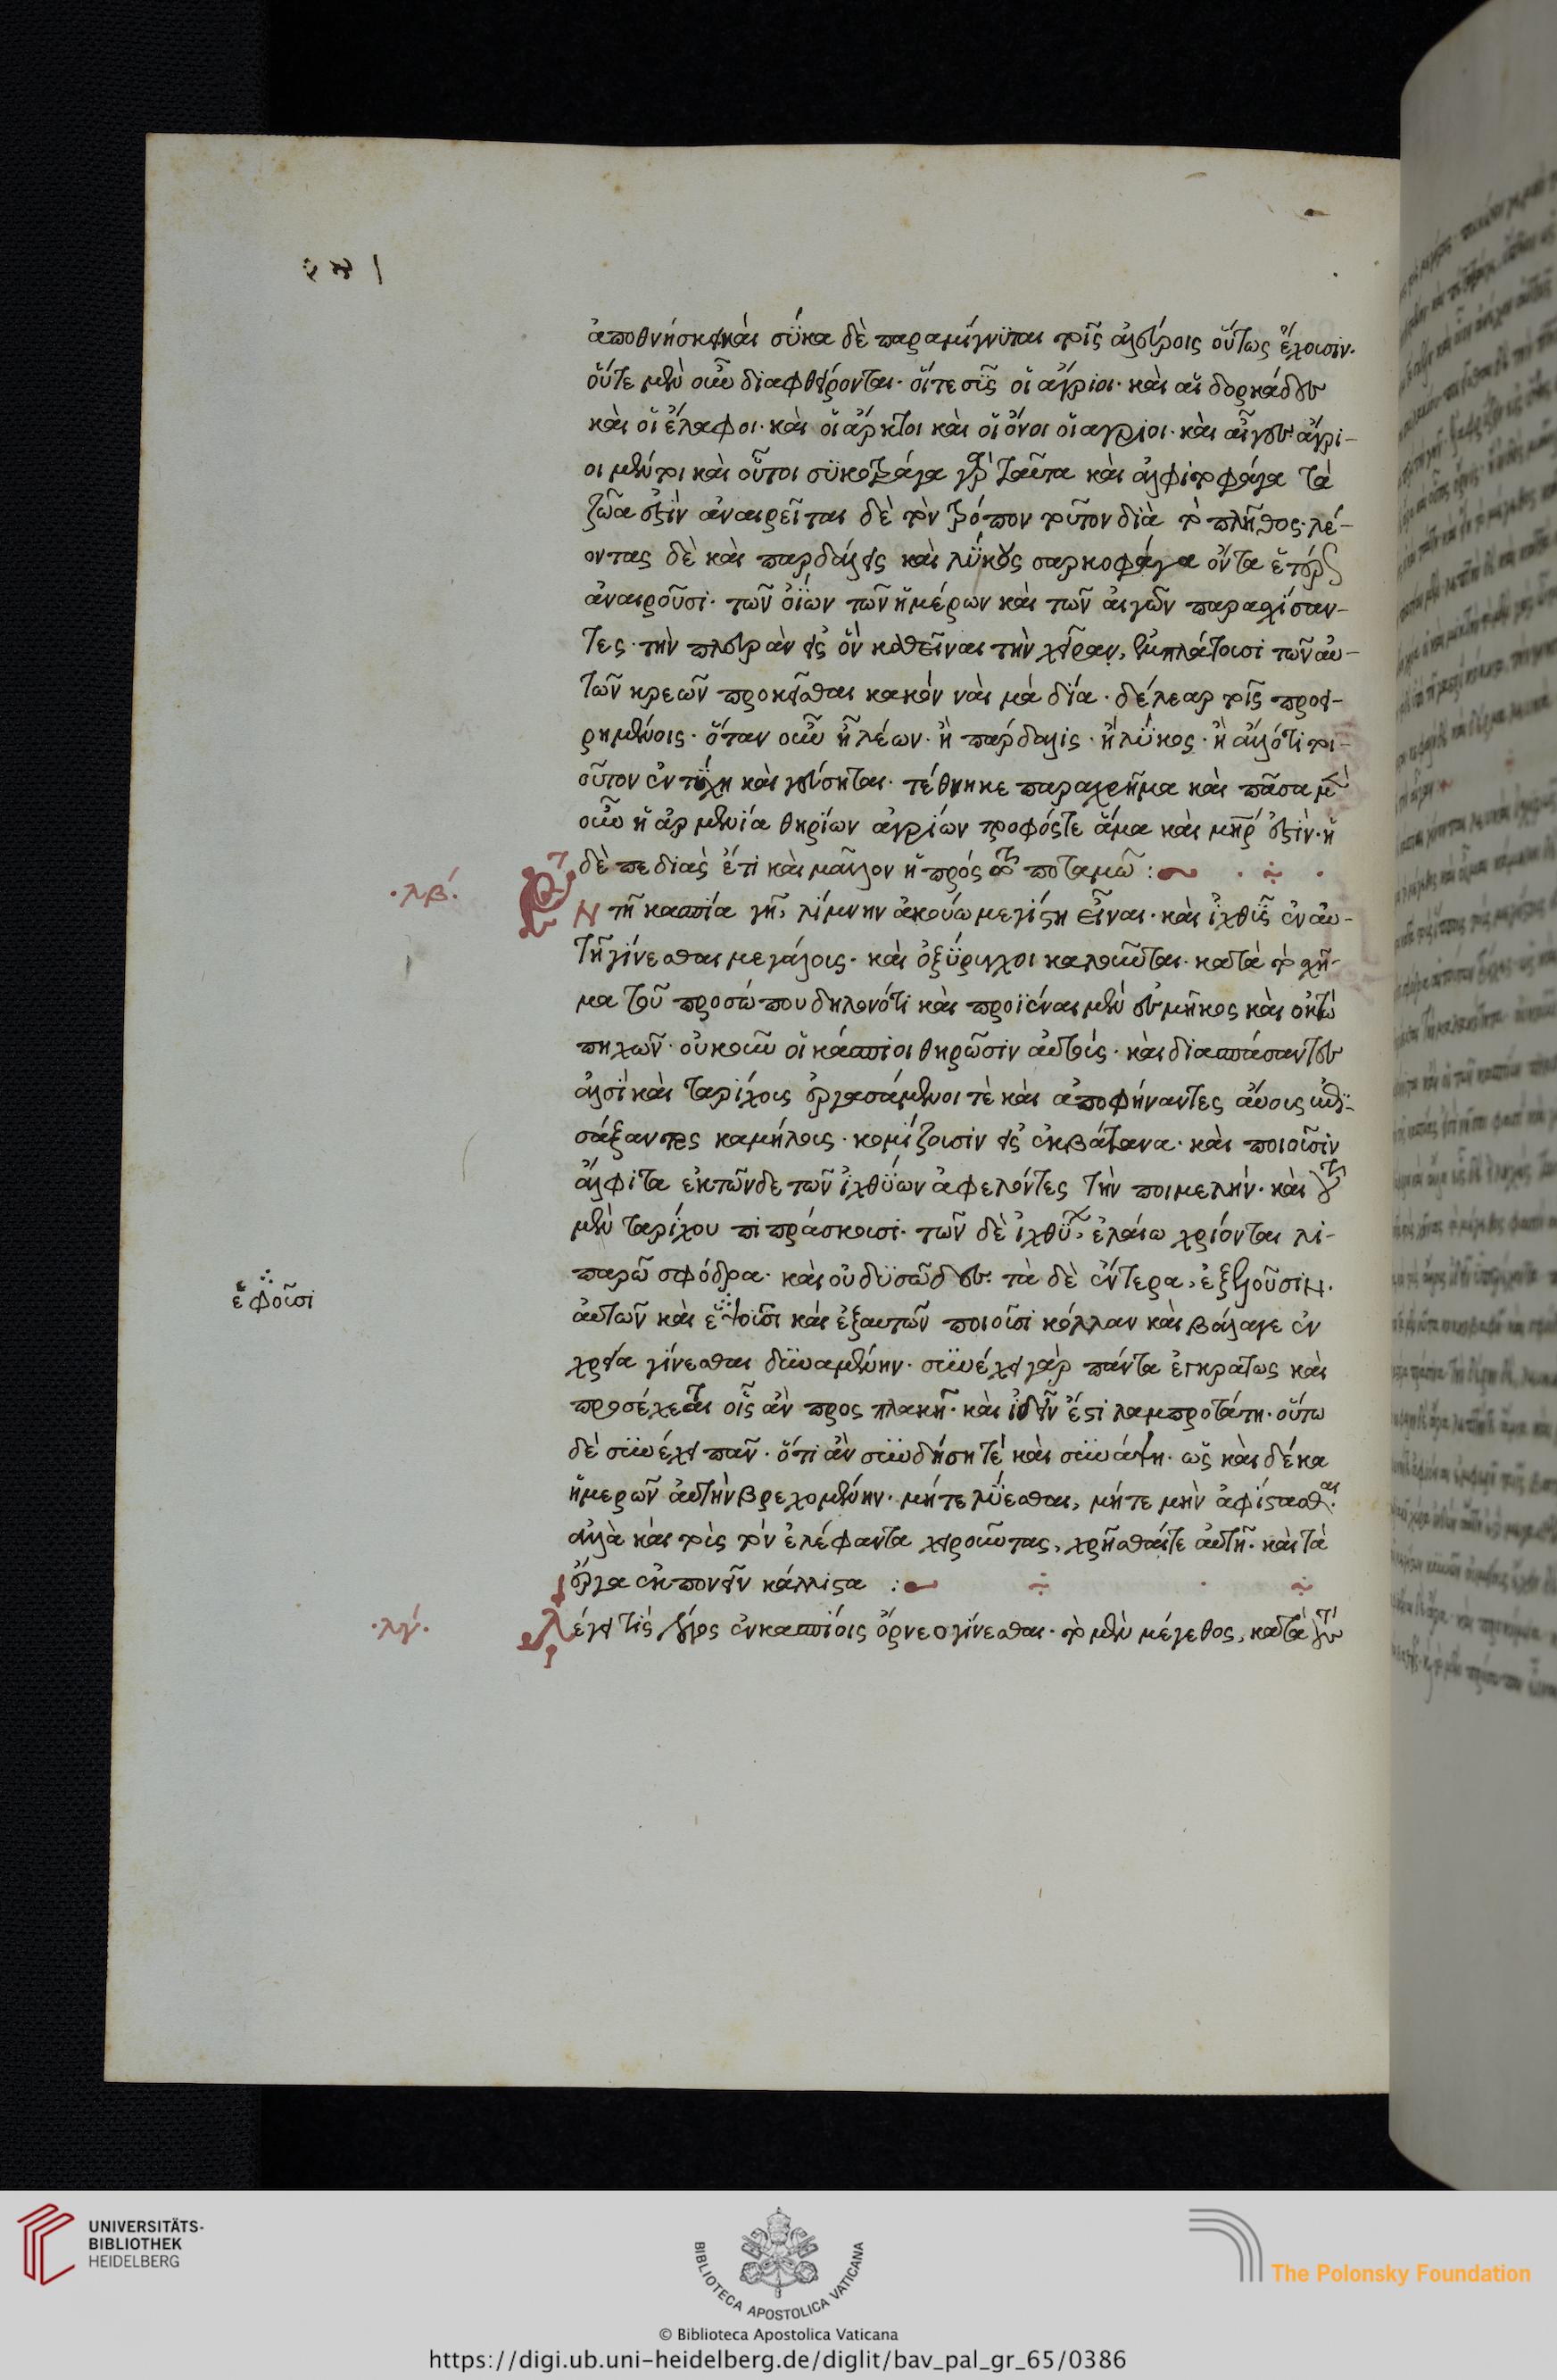 ἀποθνήσκει καὶ σῦκα δὲ παραμίγνυται τοῖς ἀλεύροις οὕτως ἔχουσιν·
οὔτε μὲν οὖν διαφθείρονται· οἵτε σῦς οἱ ἄγριοι· καὶ αἱ δορκάδες
καὶ οἱ ἔλαφοι· καὶ οἱ ἄρκτοι καὶ οἱ ὄνοι οἱ αγριοι· καὶ αἶγες ἄγρι-
οι μέντοι καὶ οὗτοι συκοτράγα γὰρ ταῦτα καὶ ἀλφιτοφάγα τὰ
ζῶα ἐστὶν ἀναιρεῖται δὲ τὸν τρόπον τοῦτον διὰ τὸ πλῆθος· λέ-
οντας δὲ καὶ παρδάλεις καὶ λύκους σαρκοφάγα ὄντα ἑτέρως
ἀναιροῦσι· τῶν οἰῶν τῶν ἡμέρων καὶ τῶν αἰγῶν παρασχίσαν-
τες· τὴν πλευρὰν εἰς ὃν καθεῖναι τὴν χεῖραν, ἐμπλάτουσι τῶν αὐ-
τῶν κρεῶν προκεῖσθαι κακόν ναὶ μὰ δία· δέλεαρ τοῖς προει-
ρημένοις· ὅταν οὖν ἢ λέων· ἢ πάρδαλις· ἢ λύκος· ἢ ἄλλό τι τοι-
οῦτον ἐντύχη καὶ γεύσηται· τέθνηκε παραχρῆμα καὶ πᾶσα μὲν
οὖν ἡ ἀρμενία θηρίων ἀγρίων τροφός τε ἅμα καὶ μήτηρ ἐστίν· ἡ
δὲ πεδιὰς ἔτι καὶ μᾶλλον ἡ πρός τῶ ποταμῶ :
·λβ΄·
Ἐν τῆ κασπία γῆ, λίμνην ἀκούω μεγίστη εἶναι· καὶ ἰχθῦς ἐν αὐ-
τῆ γίνεσθαι μεγάλους· καὶ ὀξύρυγχοι καλοῦνται· κατὰ τὸ σχῆ-
μα τοῦ προσώπου δηλονότι καὶ προϊέναι μὲν ἐς μῆκος καὶ οκτὼ
πηχῶν· οὐκοῦν οἱ κάσπιοι θηρῶσιν αὐτούς· καὶ διαπάσαντες
ἁλσὶ καὶ ταρίχους ἐργασάμενοι τὲ καὶ ἀποφήναντες αὔους ἐπι-
σάξαντες καμήλοις· κομίζουσιν εἰς ἐκβάτανα· καὶ ποιοῦσιν
ἄλφιτα ἐκ τῶνδε τῶν ἰχθύων ἀφελόντες τὴν πιμελήν· καὶ τοῦ
μὲν ταρίχου πιπράσκουσι· τῶν δὲ ἰχθύων, ἐλαίω χρίονται λι-
παρῶ σφόδρα· καὶ οὐ δυσώδες· τὰ δὲ ἔντερα, ἐξαιροῦσιν·
ἐφοῦσι
αὐτῶν καὶ ἑψοῦσι καὶ ἐξ αυτῶν ποιοῦσι κόλλαν καὶ βάλαγε ἐν
χρεία γίνεσθαι δυναμένην· συνέχει γὰρ πάντα ἐγκρατως καὶ
προσέχεται οἷς ἂν προς πλακῆ· καὶ ἰδεῖν ἔστι λαμπροτάτη· οὕτω
δὲ συνέχει πᾶν· ὅτι ἂν συνδήση τέ καὶ συνάψη· ὡς καὶ δέκα
ἡμερῶν αὐτὴν βρεχομένην· μήτε λύεσθαι, μήτε μὴν ἀφίστασθαι·
ἀλλὰ καὶ τοὺς τὸν ἐλέφαντα χειροῦντας, χρῆσθαί τε αὐτῆ· καὶ τὰ
ἔργα ἐκπονεῖν κάλλιστα :
·λγ΄·
Λέγει τίς λόγος ἐν κασπίοις ὄρνεο γίνεσθαι· τὸ μὲν μέγεθος, κατὰ τοὺς
UNIVERSITÄTS-
BIBLIOTHEK
HEIDELBERG
BIBLIOTECA APOSTOLICA VATICANA
© Biblioteca Apostolica Vaticana
The Polonsky Foundation
https://digi.ub.uni-heidelberg.de/diglit/bav_pal_gr_65/0386